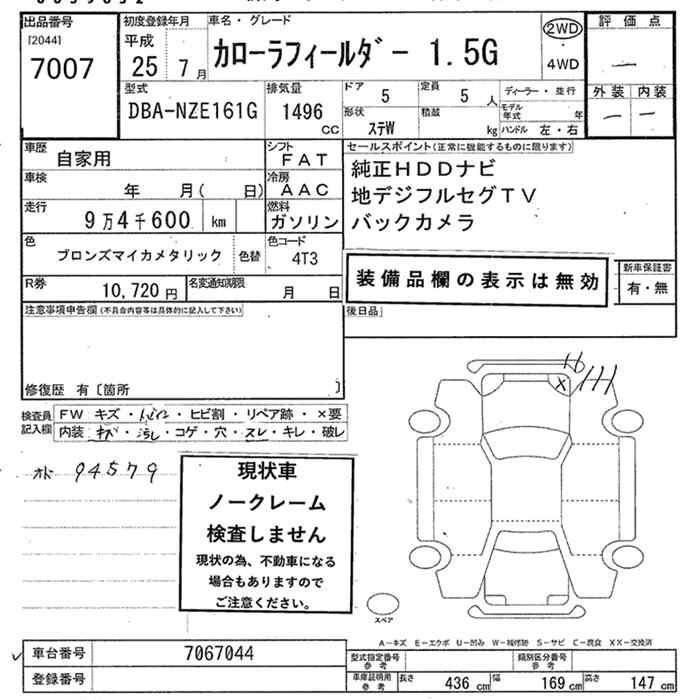 出品番号
[2044]
7007
初度登録年月
平成
25 7月
車名・グレード
カローラフィールダー 1.5G
2WD
4WD
評価点
—
外装 内装
— —
型式
DBA-NZE161G
排気量
1496
cc
ドア
5
定員
5 人
形状
ステW
積載
kg
ディーラー・並行
モデル年式
年
ハンドル 左・右
車歴
自家用
シフト
FAT
車検
年 月( 日)
冷房
AAC
走行
9万4千600 km
燃料
ガソリン
色
ブロンズマイカメタリック
色替
色コード
4T3
R券
10,720 円
名変通知期限
月 日
セールスポイント(正常に機能するものに限ります)
純正HDDナビ
地デジフルセグTV
バックカメラ
装備品欄の表示は無効
新車保証書
有・無
後日品
注意事項申告欄(不具合内容等は具体的に記入して下さい)
修復歴 有〔箇所 〕
検査員記入欄
FW キズ・ ・ヒビ割・リペア跡・×要
内装 ・ ・コゲ・穴・スレ・キレ・破レ
94579
現状車
ノークレーム
検査しません
現状の為、不動車になる
場合もありますので
ご注意ください。
X
スペア
A－キズ E－エクボ U－凹み W－補修跡 S－サビ C－腐食 XX－交換済
車台番号
7067044
登録番号
型式指定番号
参考
類別区分番号
参考
車庫証明用
参考
長さ
436 cm
幅
169 cm
高さ
147 cm